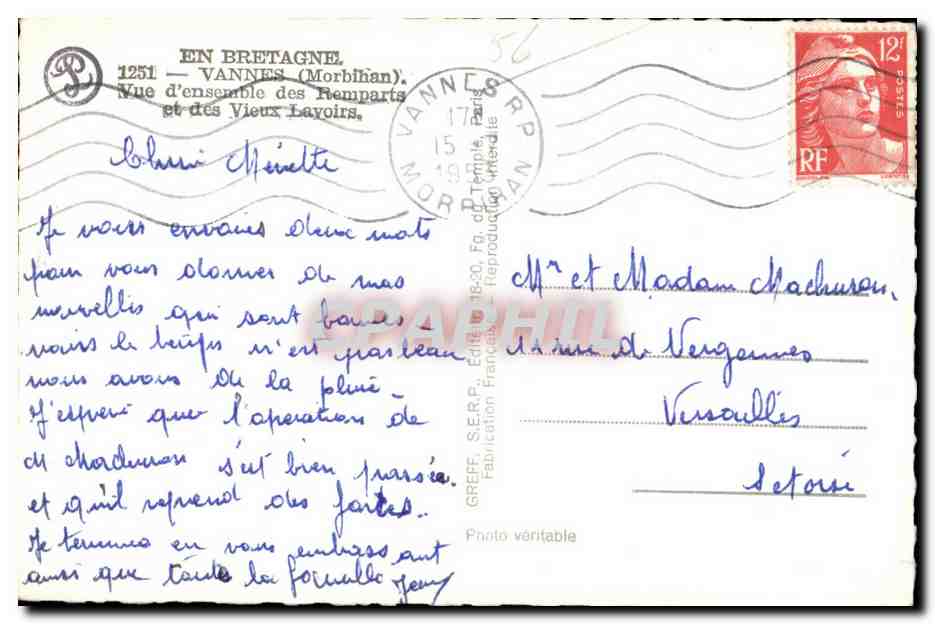 EN BRETAGNE.
1251 — VANNES (Morbihan).
Vue d'ensemble des Remparts
et des Vieux Lavoirs.
56
VANNES RP
17
15
19
MORBIHAN
12F
POSTES
RF
Menette
Je vous envoies deux mots
pour vous donner de mes
nouvelles qui sont bonnes -
mais le temps n'est pas beau
nous avons de la pluie -
J'espère que l'operation de
M Machuron s'est bien passée.
et qu'il reprend des fortes.
Je termine en vous embrassant
ainsi que toute la famille
Mr et Madam Machuron.
11 rue de Vergennes
Versailles
S et oise
GREFF, S.E.R.P., Editeur, 18-20, Fg. du Temple, Paris
Fabrication Française - Reproduction interdite
Photo véritable
CPAPHIL